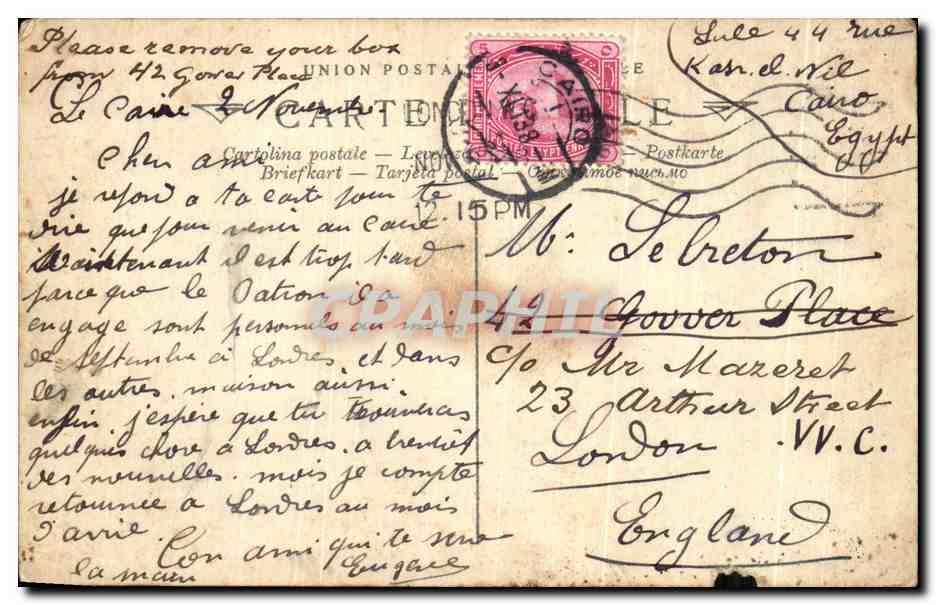 Please remove your box
from 42 Gower Place
UNION POSTALE
Le Caire 2 Novembre
CARTE POSTALE
Cartolina postale — — Postkarte
Briefkart — Tarjeta postal — Открытое письмо
CAIRO
12 15 PM
Sule 44 rue
Kasr. el. Nil
Cairo
Egypt
Cher ami
je repond a ta carte pour te
dire que pour venir au Caire
Maintenant il est trop tard
parce que le Patron il a
engage sont personnels au mois
de septembre a Londres et dans
les autres. maison aussi
enfin j'espere que tu trouveras
quelques chose a Londres. a bientôt
des nouvelles. mois je compte
retournee a Londres au mois
d'avril.
Ton ami qui te serre
la main Eugene
Mr. Lebreton
42 Gowver Place
c/o Mr Mazeret
23 Arthur Street
London W.C.
England
CRAPHIL